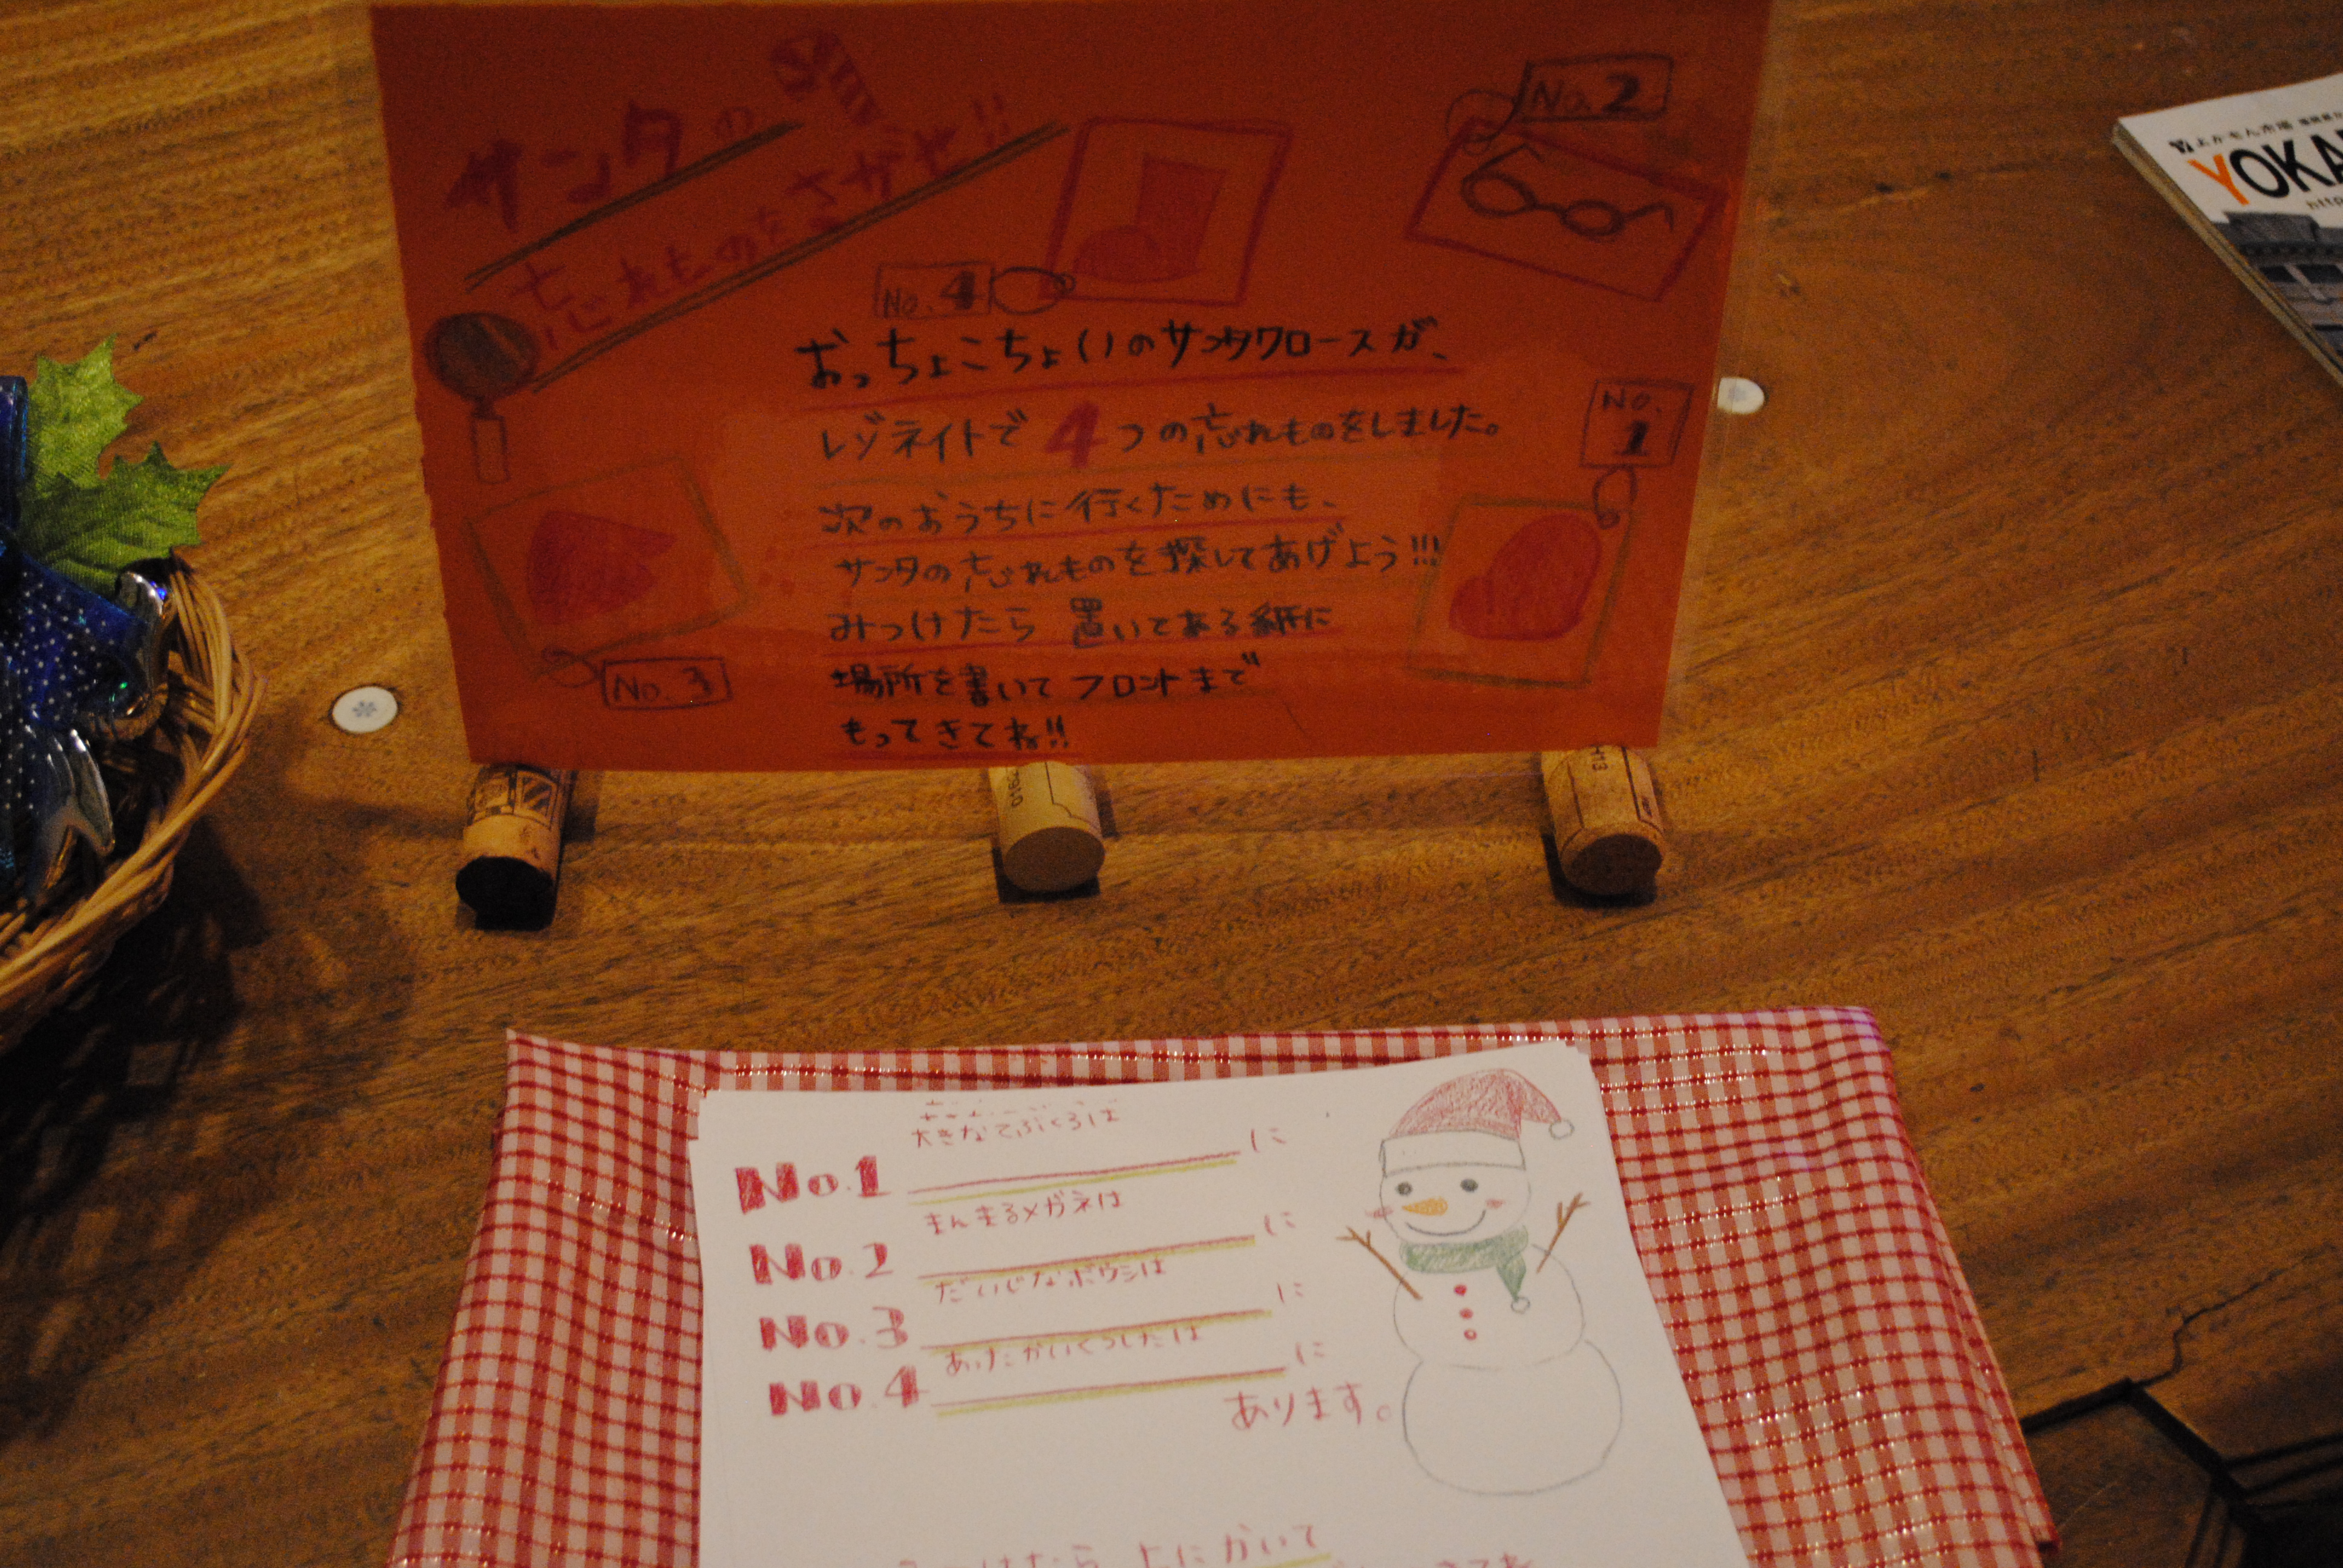 サンタの
忘れものをさがせ!!
No.2
No.4
おっちょこちょいのサンタクロースが、
レゾネイトで4つの忘れものをしました。
No.1
次のおうちに行くためにも、
サンタの忘れものを探してあげよう!!!
みつけたら置いてある紙に
No.3
場所を書いてフロントまで
もってきてね!!
よかもん市場
YOKA
http
大きなてぶくろは
No.1 に
まんまるメガネは
No.2 に
だいじなボウシは
No.3 に
あったかいくつしたは
No.4 に
あります。
上にかいて